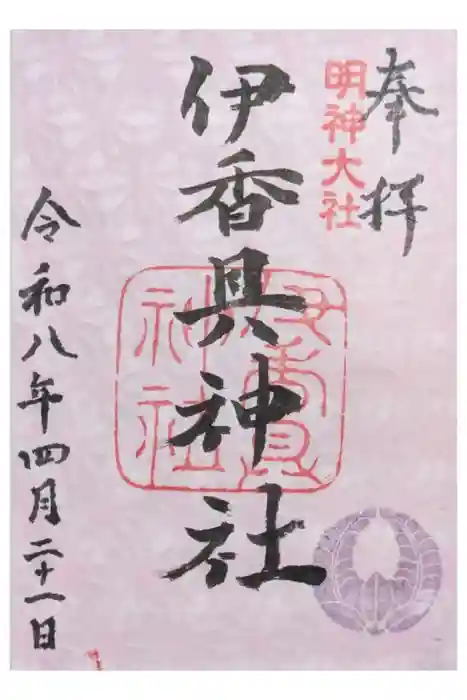 奉拝
明神大社
伊香具神社
伊香具
神社
令和八年四月二十一日